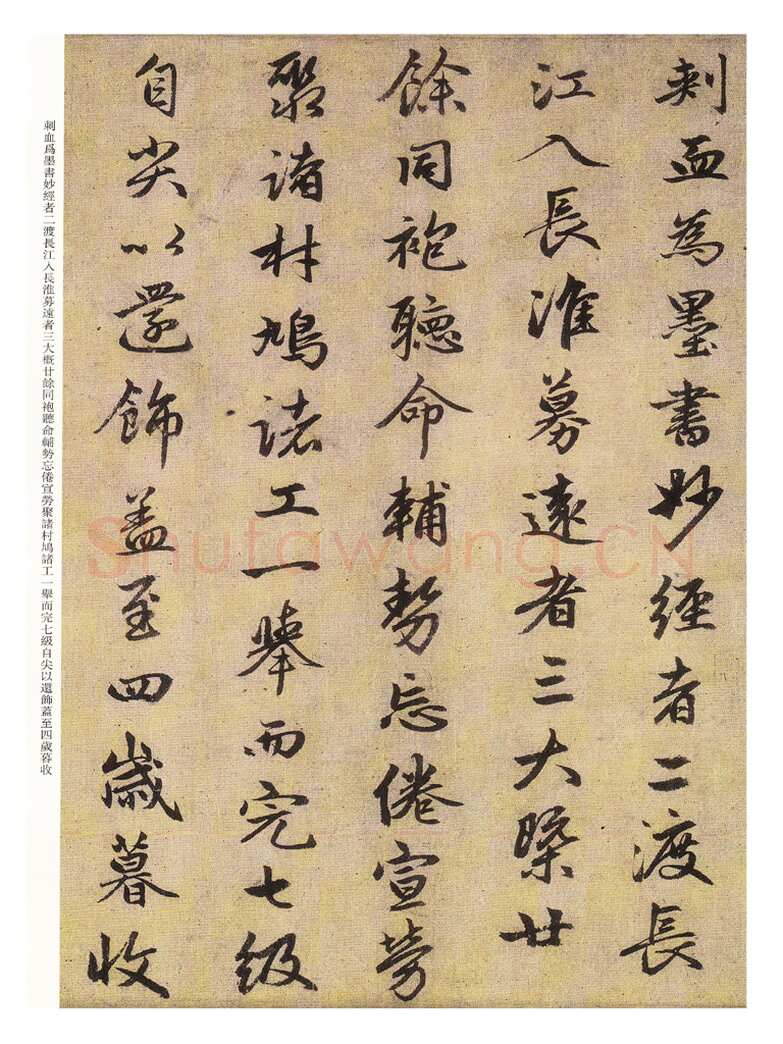 刺血為墨書妙經者二渡長
江入長淮募遠者三大槩廿
餘同袍聽命輔勢忘倦宣勞
聚諸材鳩諸工一舉而完七級
自尖以還飾蓋至四歲暮收
刺血爲墨書妙經者二渡長江入長淮募遠者三大概廿餘同袍聽命輔勢忘倦宣勞聚諸村鳩諸工一舉而完七級自尖以還飾蓋至四歲暮收
Shufawang.CN